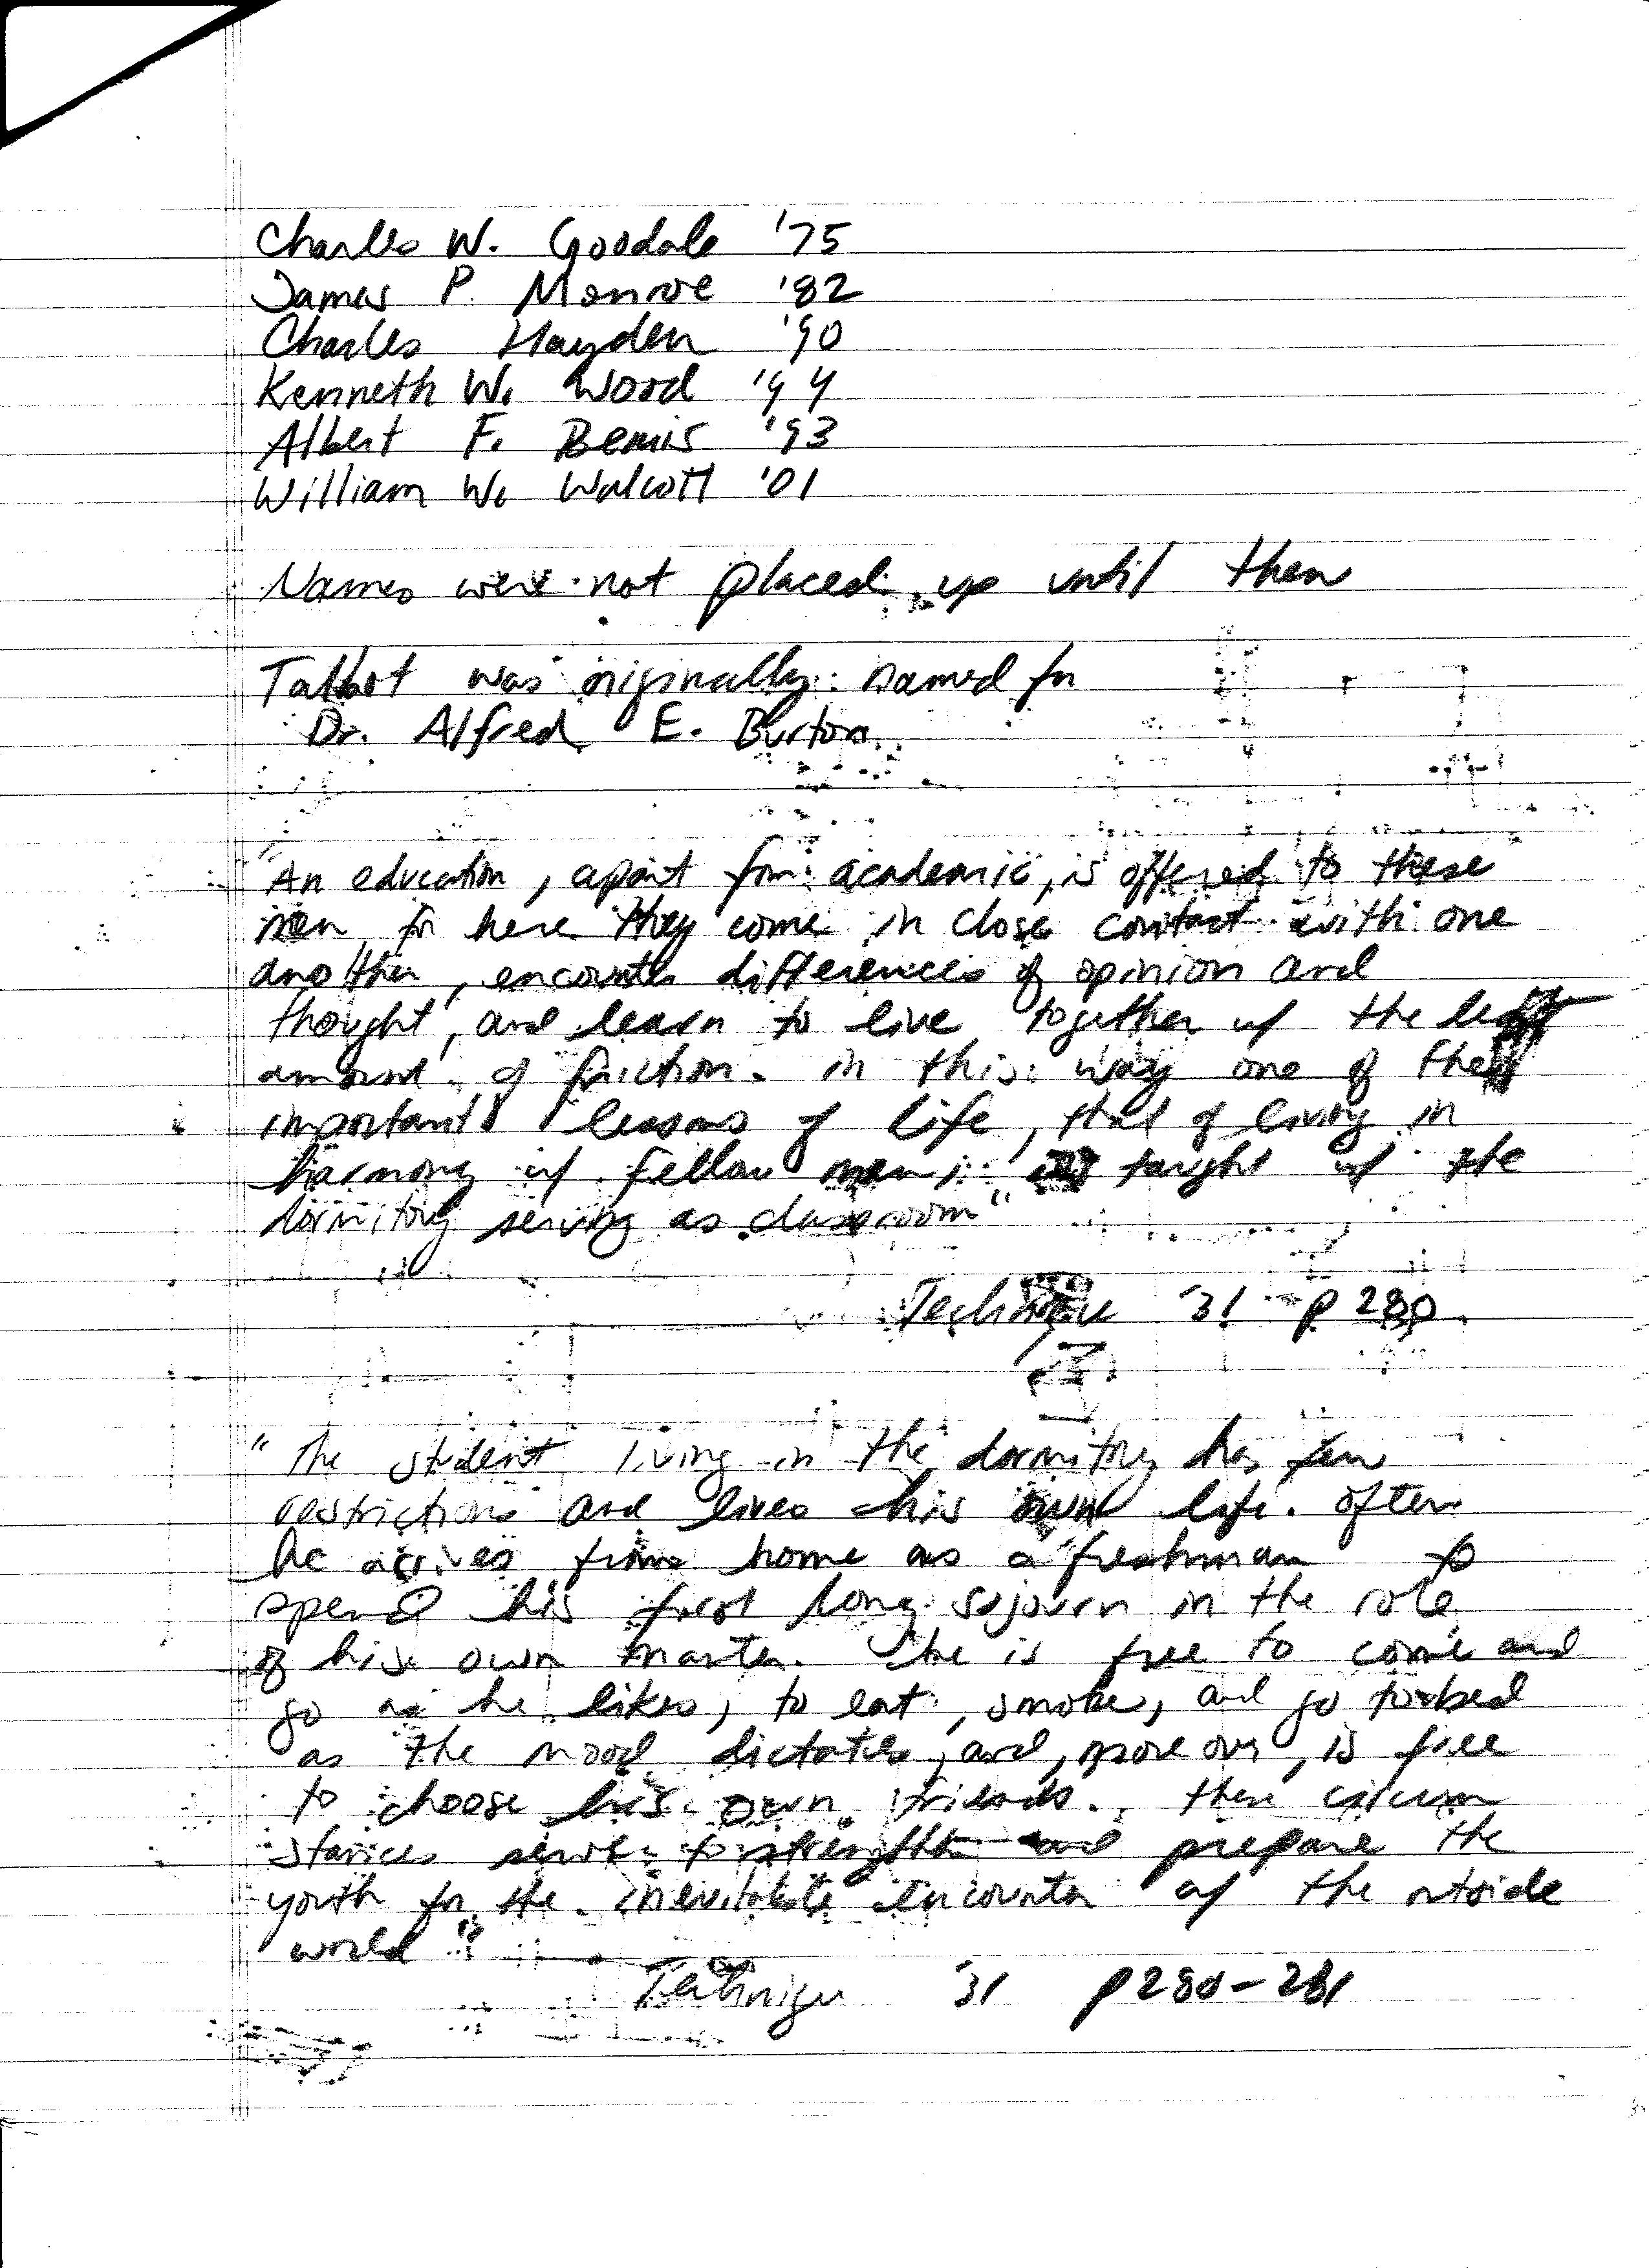 Charles W. Goodale '75
James P. Monroe '82
Charles Hayden '90
Kenneth W. Wood '94
Albert F. Bemis '93
William W. Walcott '01
Names were not placed up until then
Talbot was originally named for
Dr. Alfred E. Burton
"An education, apart from academic, is offered to these
men for here they come in close contact with one
another, encounter differences of opinion and
thought, and learn to live together w/ the least
amount of friction. in this way one of the
important lessons of life, that of living in
harmony w/ fellow men, is taught w/ the
dormitory serving as classroom"
Technique '31 p 280
"The student living in the dormitory has few
restrictions and lives his own life. Often
he arrives from home as a freshman to
spend his first long sojourn in the role
of his own master. He is free to come and
go as he likes, to eat, smoke, and go to bed
as the mood dictates, and, more over, is free
to choose his own friends. These circum
stances serve to strengthen and prepare the
youth for the inevitable encounter w/ the outside
world"
Technique '31 p 280-281